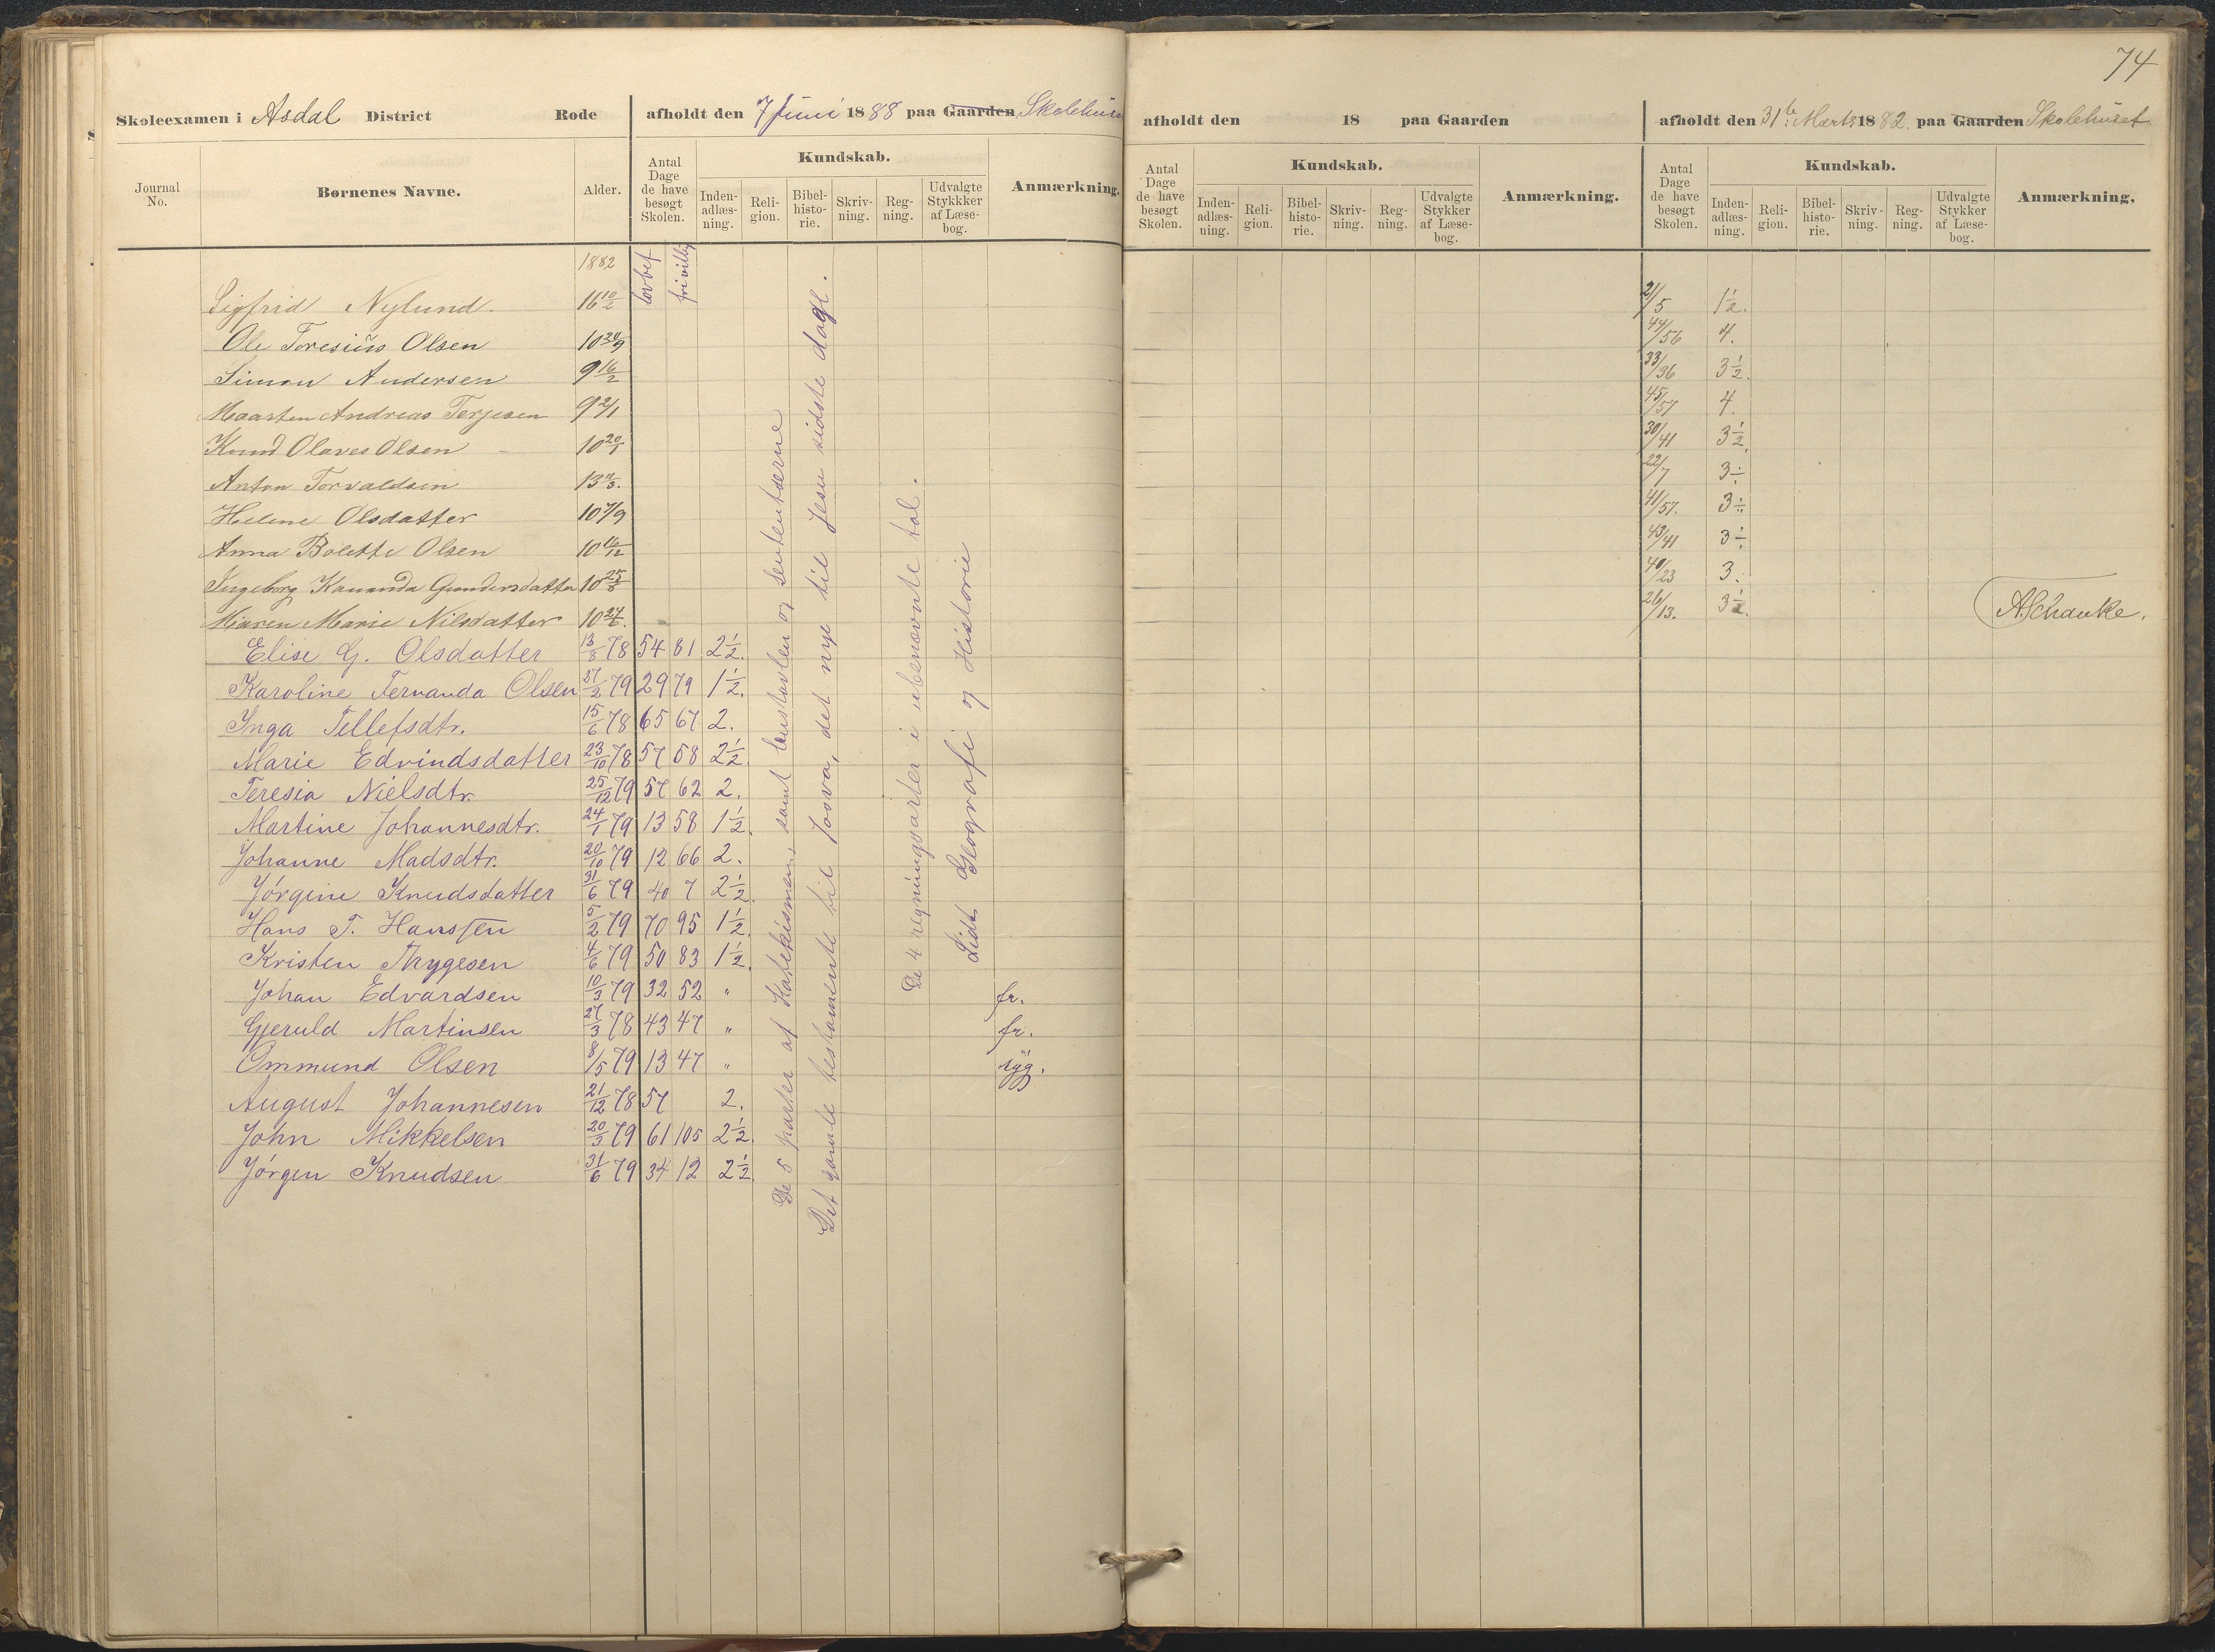 74
Skoleexamen i Asdal District Rode afholdt den 7 Juni 1888 paa Gaarden Skolehuse
afholdt den 18 paa Gaarden
afholdt den 31te Marts 1882. paa Gaarden Skolehuset
Journal No. Børnenes Navne. Alder. Antal Dage de have besøgt Skolen. Kundskab. Inden-adlæs-ning. Reli-gion. Bibel-histo-rie. Skriv-ning. Reg-ning. Udvalgte Stykkker af Læse-bog. Anmærkning.
Antal Dage de have besøgt Skolen. Kundskab. Inden-adlæs-ning. Reli-gion. Bibel-histo-rie. Skriv-ning. Reg-ning. Udvalgte Stykker af Læse-bog. Anmærkning.
Antal Dage de have besøgt Skolen. Kundskab. Inden-adlæs-ning. Reli-gion. Bibel-histo-rie. Skriv-ning. Reg-ning. Udvalgte Stykker af Læse-bog. Anmærkning.
1882 lovbef frivillig
Sigfrid Nylund. 16 10/2 21/5 1½.
Ole Toresius Olsen 10 20/9 44/56 4.
Simon Andersen 9 16/2 33/36 3½.
Maarten Andreas Terjesen 9 2/1 45/57 4.
Knud Olaves Olsen 10 20/5 30/41 3½
Anton Torvaldsen 13 4/3. 22/7 3÷
Helene Olsdatter 10 7/9 41/57. 3÷
Anna Bolette Olsen 10 16/12 43/41 3÷
Ingeborg Kananda Gundersdatter 10 25/8 40/23 3.
Maren Marie Nilsdatter 10 24/6. 26/13. 3½. A Schanke.
Elise G. Olsdatter 13/8 78 54 81 2½.
Karoline Fernanda Olsen 27/2 79 29 79 1½.
Inga Tellefsdtr. 15/6 78 65 67 2.
Marie Edvindsdatter 23/10 78 57 58 2½.
Teresia Nielsdtr. 25/12 79 57 62 2.
Martine Johannesdtr. 24/1 79 13 58 1½.
Johanne Madsdtr. 20/10 79 12 66 2.
Jørgine Knudsdatter 31/6 79 40 7 2½.
Hans T. Hanssen 5/2 79 70 95 1½.
Kristen Thygesen 4/6 79 50 83 1½.
Johan Edvardsen 10/3 79 32 52 " fr.
Gjeruld Martinsen 27/3 78 43 47 " fr.
Ommund Olsen 8/5 79 13 47 " syg.
August Johannesen 21/12 78 57 2.
John Mikkelsen 20/3 79 61 105 2½.
Jørgen Knudsen 31/6 79 34 12 2½.
De 5 parter af Katekismen, samt hustavlen og sententserne
Det gamle testamente til Josva, det nye til Jesu sidste dage.
De 4 regningsarter i ubenævnte tal.
Lidt Geografi og Historie